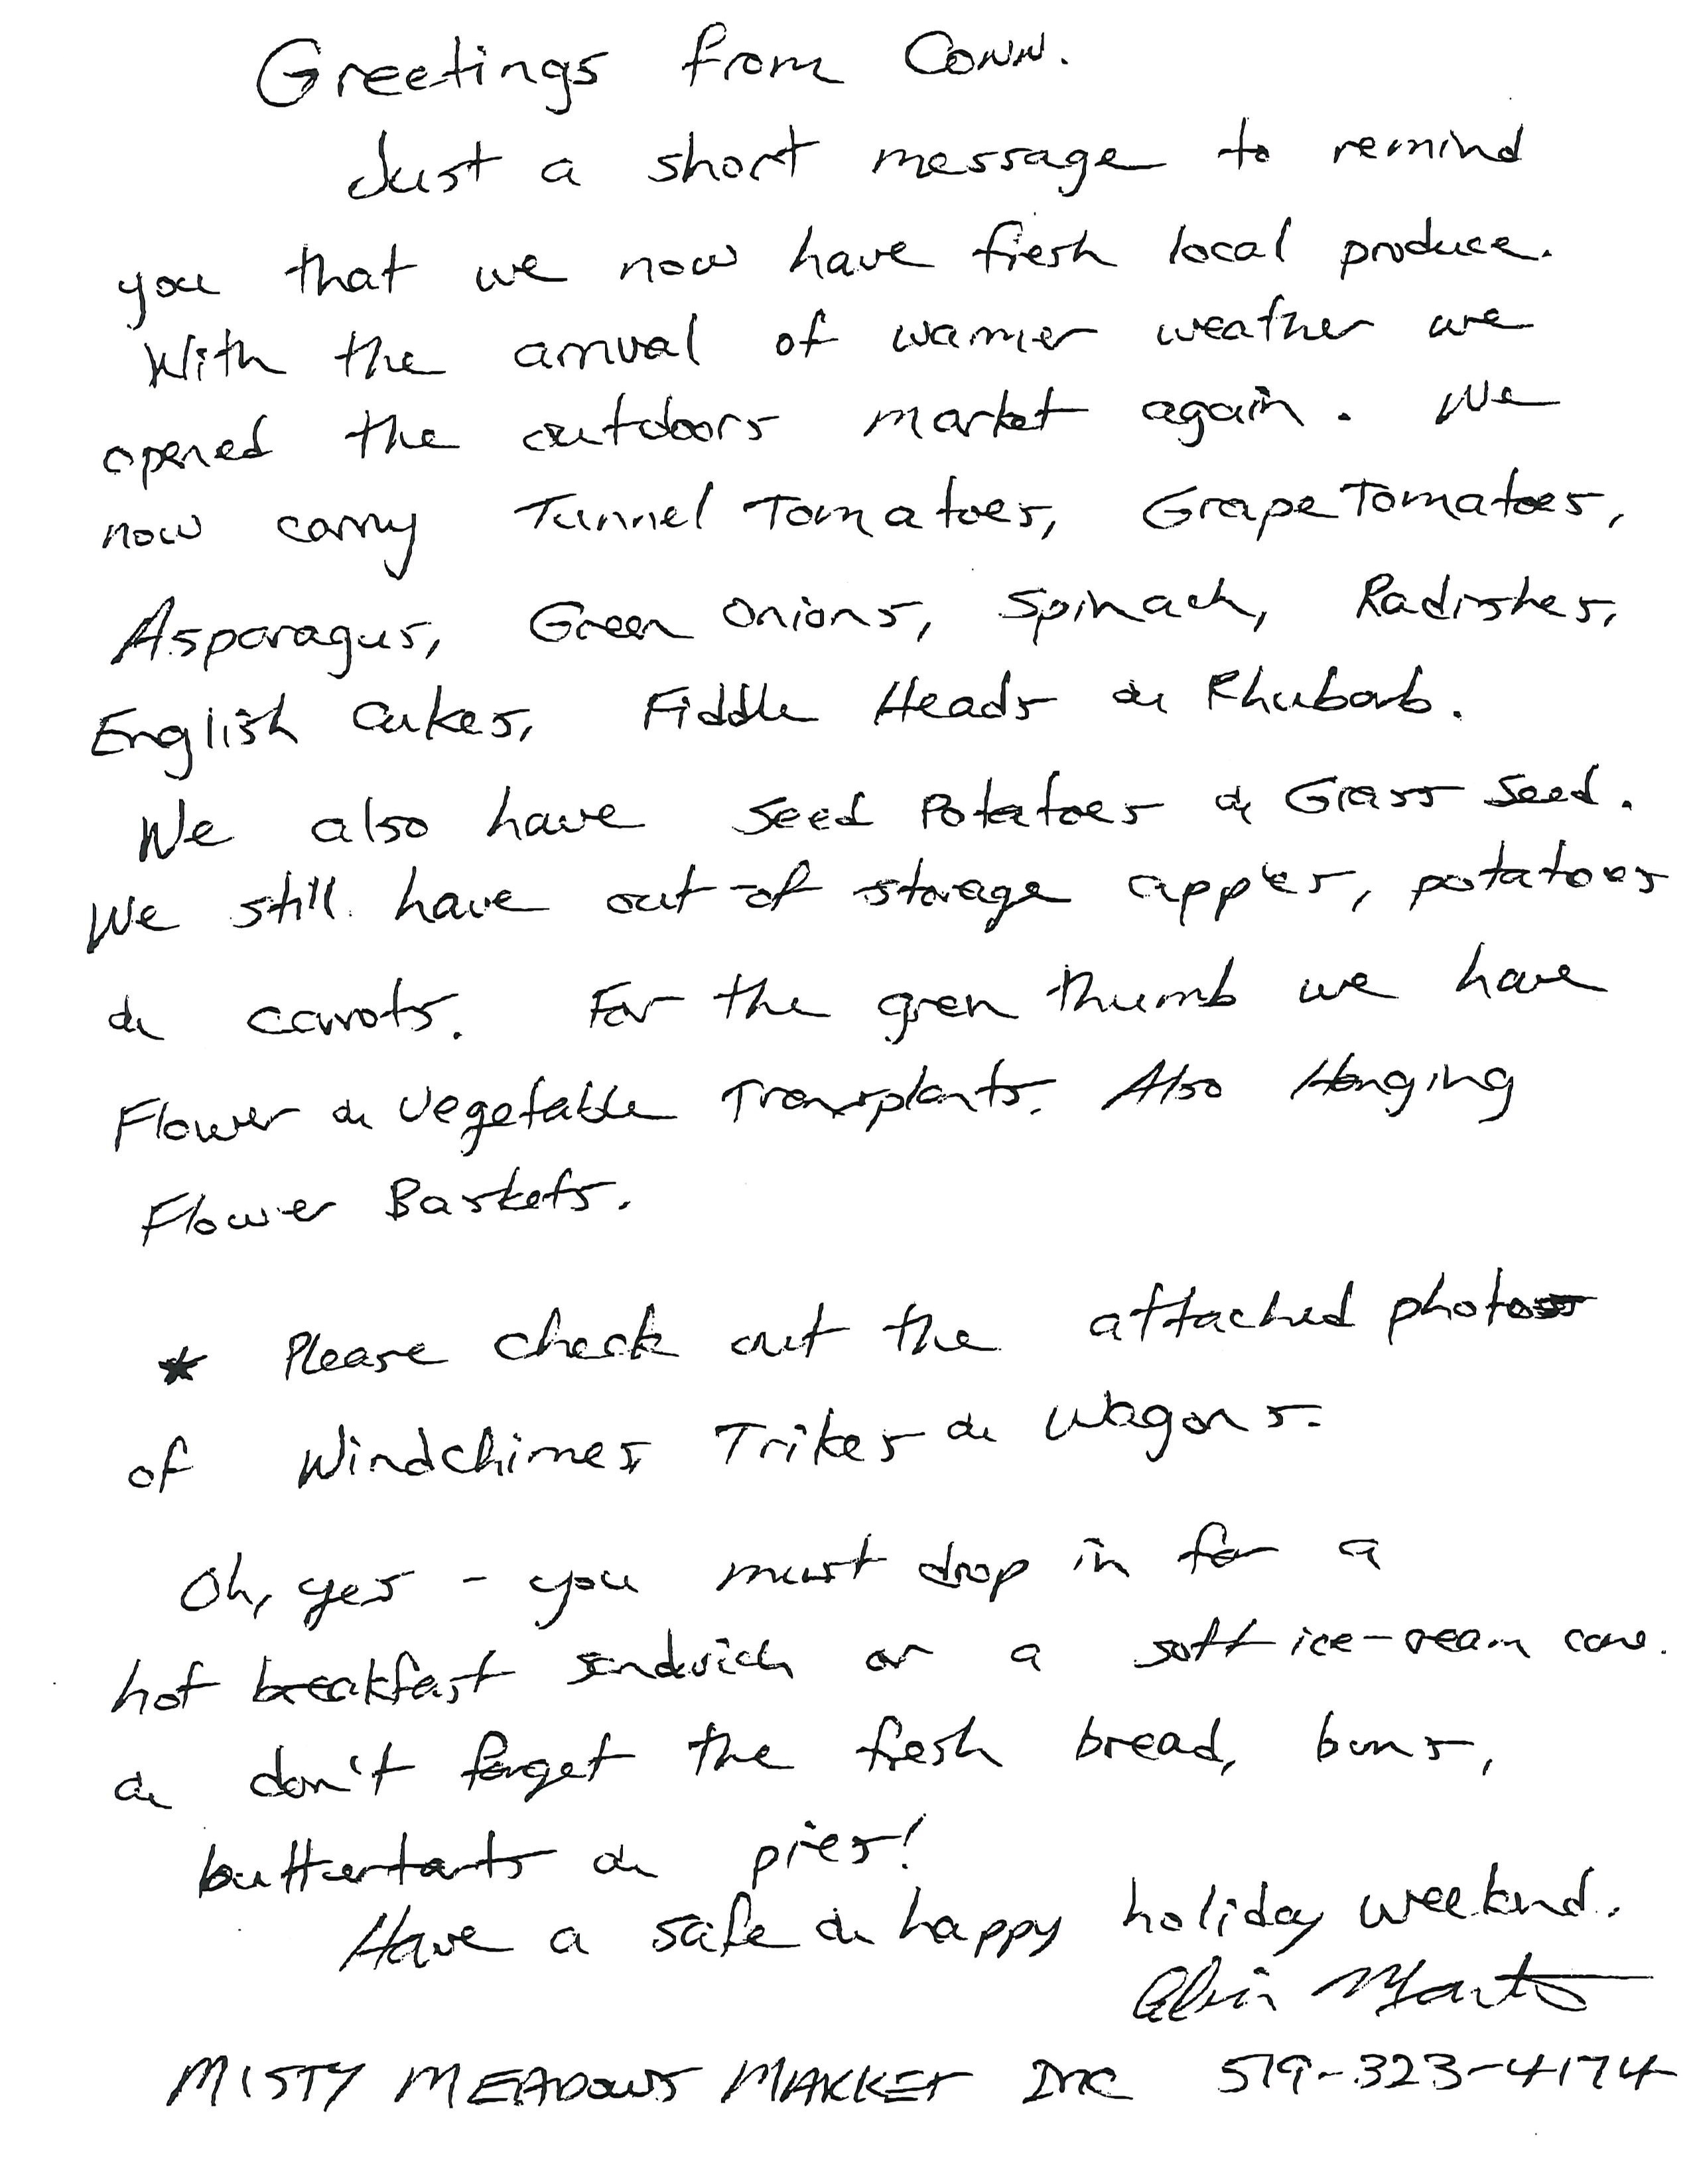 Greetings from Conn.
Just a short message to remind
you that we now have fresh local produce.
With the arrival of warmer weather we
opened the outdoors market again. We
now carry Tunnel Tomatoes, Grape Tomatoes,
Asparagus, Green Onions, Spinach, Radishes,
English Cukes, Fiddle Heads & Rhubarb.
We also have Seed Potatoes & Grass Seed.
We still have out-of storage apples, potatoes
& carrots. For the green thumb we have
Flower & Vegetable Transplants. Also Hanging
Flower Baskets.
* Please check out the attached photos
of Windchimes, Trikes & Wagons.
Oh, yes - you must drop in for a
hot breakfast sandwich or a soft ice-cream cone.
& don't forget the fresh bread, buns,
buttertarts & pies!
Have a safe & happy holiday weekend.
MISTY MEADOWS MARKET INC 519-323-4174